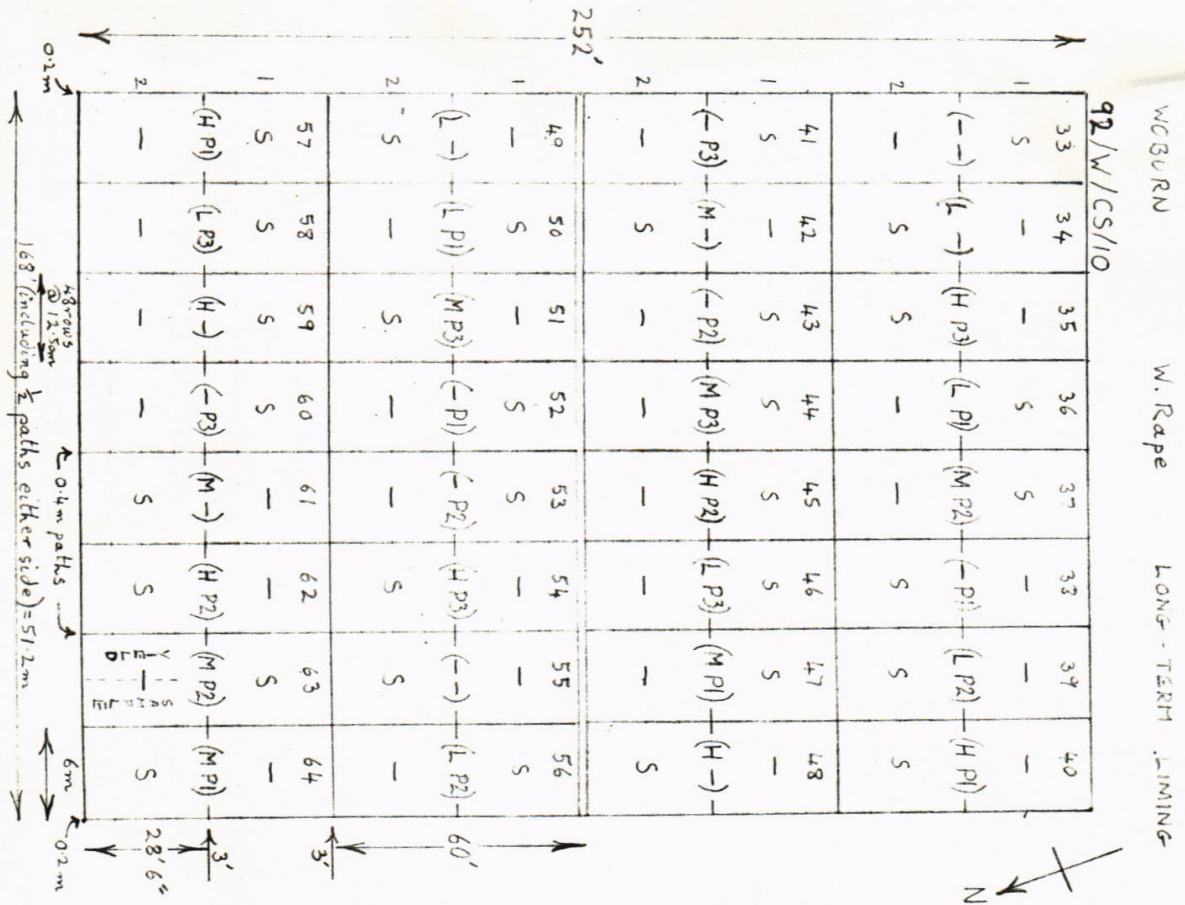 WOBURN W. Rape LONG-TERM LIMING
92/W/CS/10
33 34 35 36 37 38 39 40
1 S - - S S - - -
(- -) (L -) (H P3) (L P1) (M P2) (- P1) (L P2) (H P1)
2 - S S - - S S S
41 42 43 44 45 46 47 48
1 S - S S S S S -
(- P3) (M -) (- P2) (M P3) (H P2) (L P3) (M P1) (H -)
2 - S - - - - - S
49 50 51 52 53 54 55 56
1 - S - S S - - S
(L -) (L P1) (M P3) (- P1) (- P2) (H P3) (- -) (L P2)
2 S - S - - S S -
57 58 59 60 61 62 63 64
1 S S S S - - S -
(H P1) (L P3) (H -) (- P3) (M -) (H P2) (M P2) (M P1)
2 - - - - S S - S
YIELD
SAMPLE
252'
0.2m
48 rows
@ 12.5cm
0.4m paths
6m
0.2m
168' (including ½ paths either side) = 51.2m
28'6"
3'
3'
60'
N